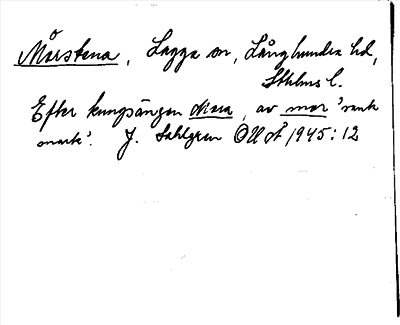 Mårstena, Lagga sn, Långhundra hd,
Sthlms l.
Efter kungsängen Mara, av mar 'sank
mark'. J. Sahlgren OUÅ 1945:12